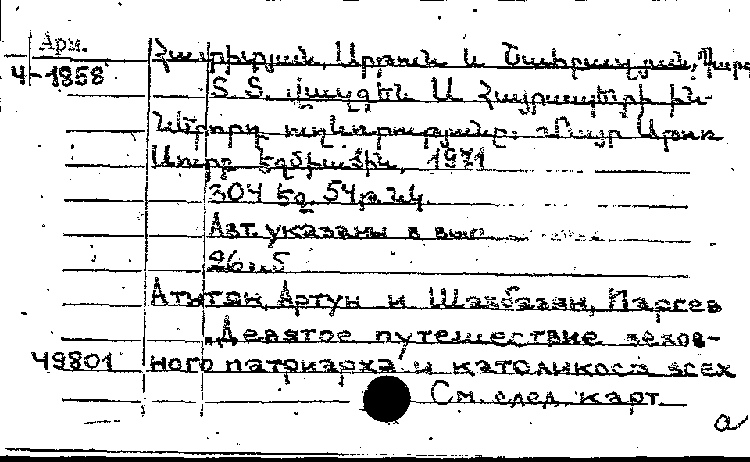 Арм.
Ч-1858
Արտուն և Շահբազյան, Պարգ
Տ. Տ. Վազգեն Ա Հայրապետի ին-
ներորդ ուղևորությունը: Մայր Աթոռ
Սուրբ Էջմիածին, 1971
304 եջ. 54 թ. նկ.
Авт. указаны в вып
Артун и Шахбазян, Паргев
„Девятое путешествие верхов-
49801 ного патриарха и католикоса всех
См. след. карт.
а